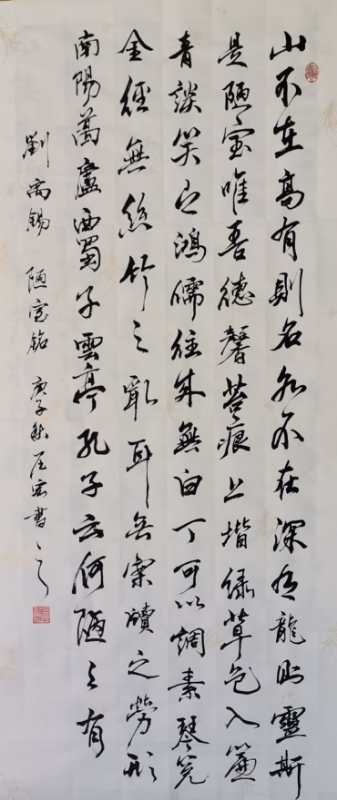 山不在高有則名水不在深有龍則靈斯
是陋室唯吾德馨苔痕上堦綠草色入簾
青談笑有鴻儒往來無白丁可以調素琴閱
金經無絲竹之亂耳無案牘之勞形
南陽葛廬西蜀子雲亭孔子云何陋之有
劉禹錫 陋室銘 庚子秋 書